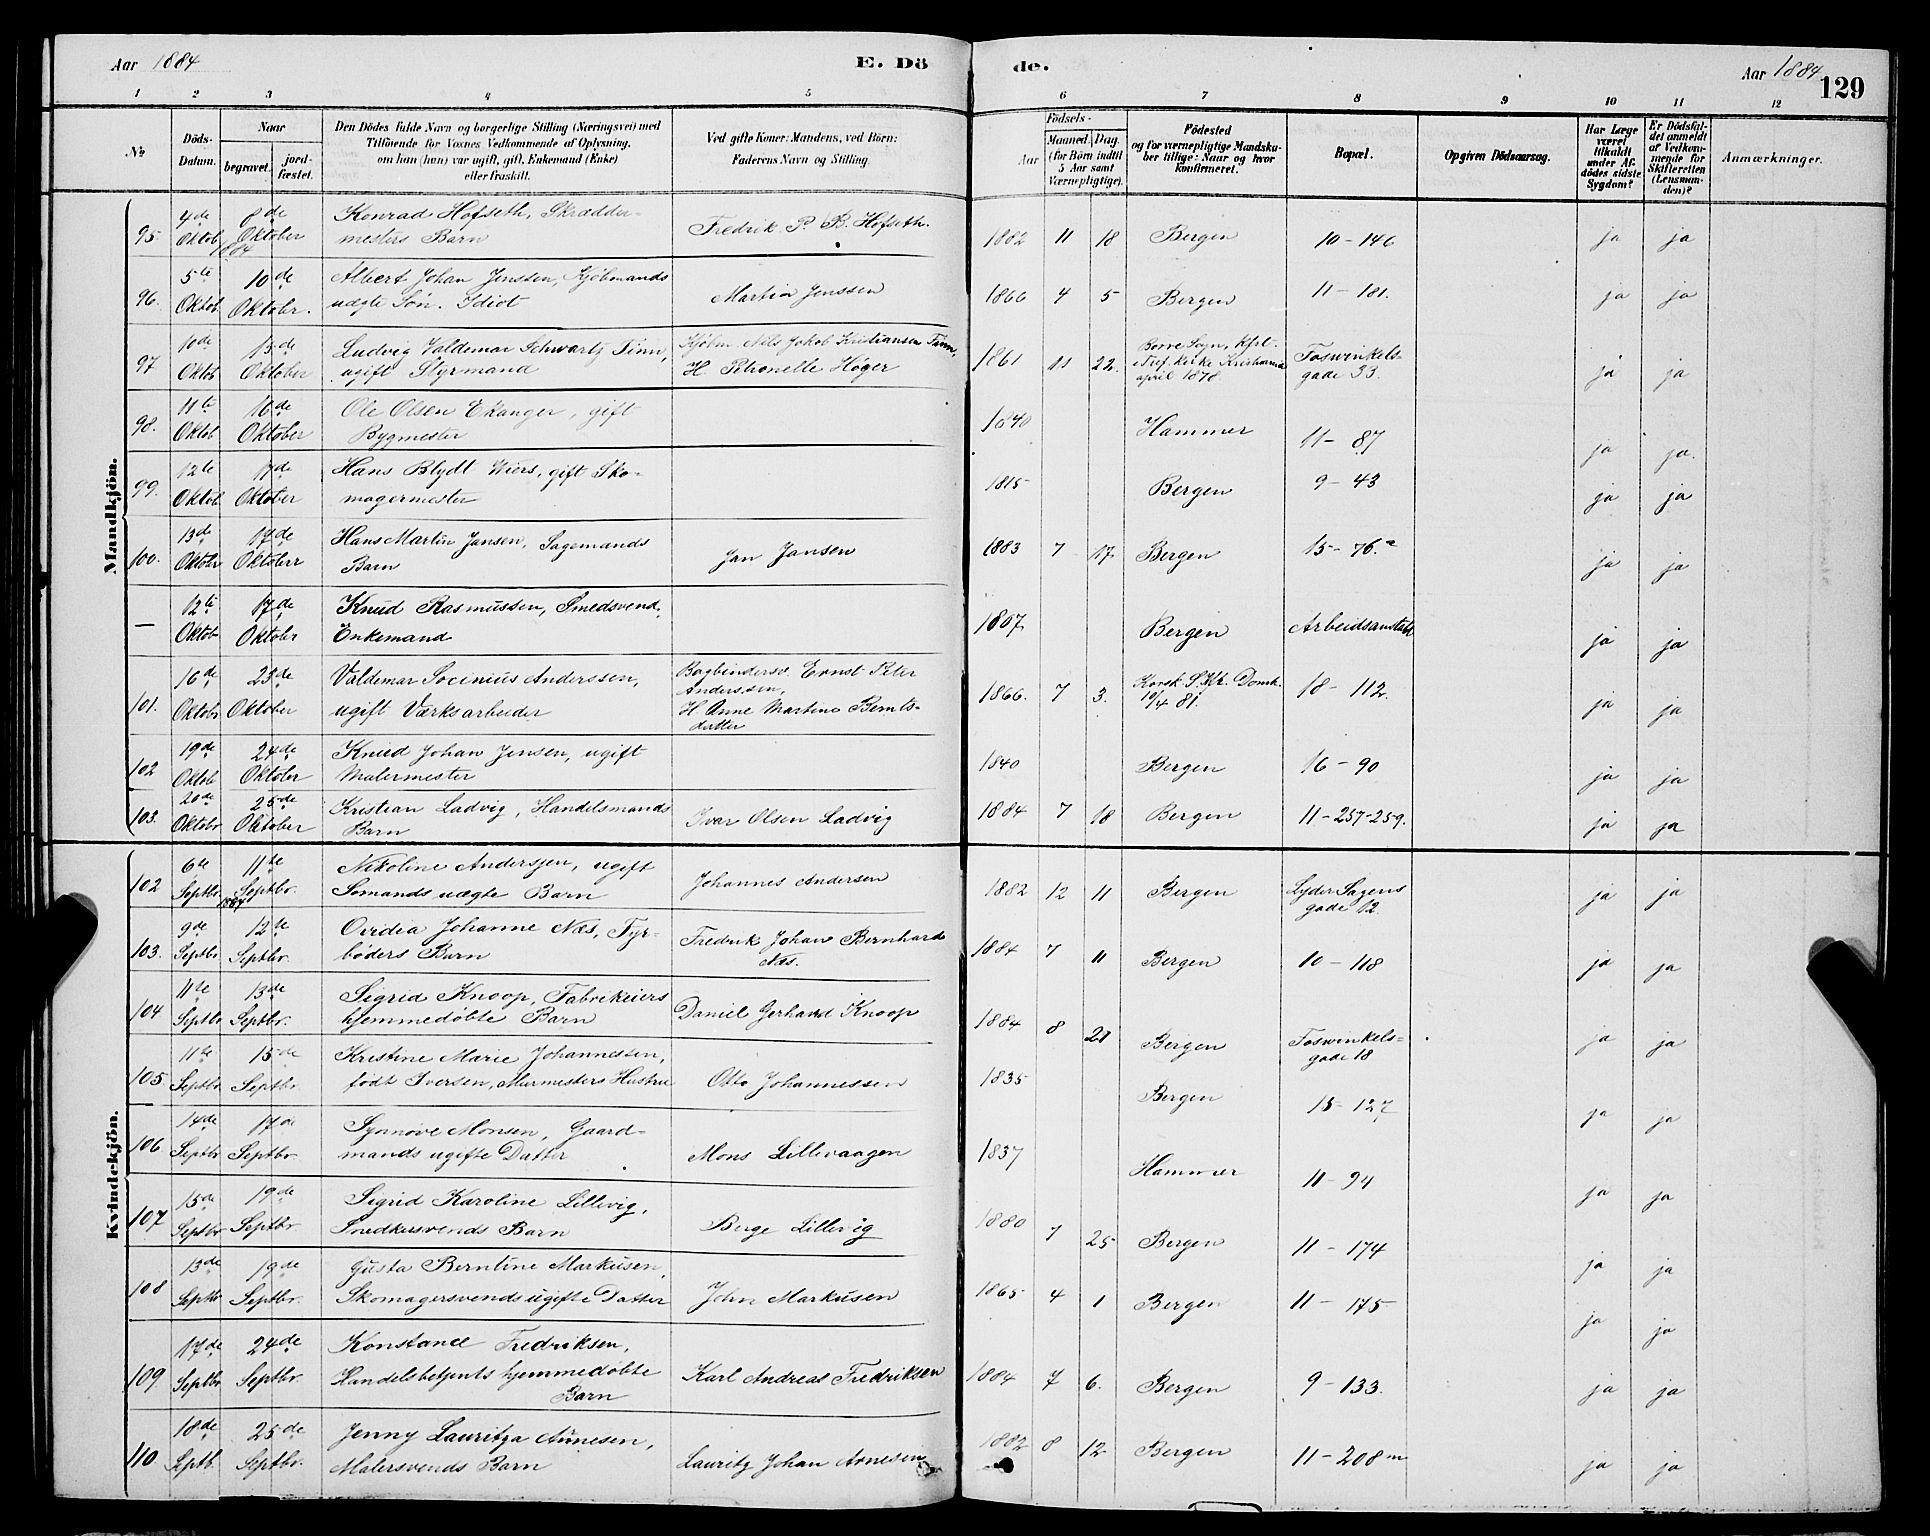 Aar 1884
E. Dö
de.
Aar 1884
129
1 2 3 4 5 6 7 8 9 10 11 12
No
Döds-Datum.
Naar
begravet.
jord-fæstet.
Den Dödes fulde Navn og borgerlige Stilling (Næringsvei) med
Tilföiende for Voxnes Vedkommende af Oplysning,
om han (hun) var ugift, gift, Enkemand (Enke)
eller fraskilt.
Ved gifte Koner: Mandens, ved Börn:
Faderens Navn og Stilling.
Födsels-
Aar
Maaned. Dag.
(for Börn indtil
5 Aar samt
Værnepligtige).
Födested
og for værnepligtige Mandsku-
ber tillige: Naar og hvor
konfirmeret.
Bopæl.
Opgiven Dödsaarsag.
Har Læge
været
tilkaldt
under Af-
dödes sidste
Sygdom?
Er Dödsfal-
det anmeldt
af Vedkom-
mende for
Skifteretten
(Lensman-
den)?
Anmærkninger.
Mandkjön.
95. 4de Oktob. 8de Oktober 1884 Konrad Hofseth, Skrædder-
mesters Barn Fredrik P. B. Hofseth. 1882 11 18 Bergen 10-146 ja ja
96. 5te Oktob 10de Oktober. Albert Johan Jenssen, Kjøbmands
uægte Søn. Idiot Martin Jenssen 1866 4 5 Bergen 11-181. ja ja
97 10de Oktob 15de Oktober Ludvig Valdemar Schwartz Finn,
ugift Styrmand Kjøbm. Nils Jakob Kristiansen Finn,
H. Petronelle Høger 1861 11 22. Borre Sogn, kfrt.
i Tref. kirke Kristiania
april 1878. Foswinkels-
gade 33. ja ja
98. 11te Oktob 16de Oktober Ole Olsen Ekanger, gift
Bygmester 1840 Hammer 11-87 ja ja.
99. 12te Oktob 17de Oktober Hans Blydt Wiers, gift Sko-
magermester 1815 Bergen 9-43 ja ja
100. 13de Oktober 17de Oktober Hans Martin Jansen, Sagemands
Barn Jan Jansen 1883 7 17. Bergen 15-76.a ja ja
— 12te Oktob 17de Oktober Knud Rasmussen, Smedsvend,
Enkemand 1807 Bergen Arbeidsanstalt ja ja
101. 16de Oktobr 23de Oktober Valdemar Socinius Anderssen,
ugift Værksarbeider Bogbindersv. Ernst Peter
Anderssen,
H Anne Martine Bernts-
datter 1866. 7 3. Korsk. S. Kfr. Domk.
10/4 81. 18-112. ja ja
102 19de Oktob 24de Oktober Knud Johan Jensen, ugift
Malermester 1840 Bergen 16-90 ja ja
103. 20de Oktobr 25de Oktober Kristian Ladvig, Handelsmands
Barn Ivar Olsen Ladvig 1884 7 18 Bergen 11-257-259. ja ja
Kvindekjön.
102 6te Septbr. 11te Septbr 1884 Nikoline Andersen, ugift
Sømands uægte Barn Johannes Andersen 1882 12 11 Bergen Lyder Sagens
gade 12. ja ja
103. 9de Septbr 12te Septbr. Ovidia Johanne Næs, Fyr-
bøders Barn Fredrik Johan Bernhard
Næs. 1884 7 11 Bergen 10-118 ja ja
104 11te Septbr 13de Septbr. Sigrid Knoop, Fabrikeiers
hjemmedøbte Barn Daniel Gerhard Knoop 1884 8 21 Bergen Foswinkels=
gade 18 ja ja
105 11te Septbr 15de Septbr. Kristine Marie Johannessen,
født Iversen, Murmesters Hustru Otto Johannessen 1835 Bergen 15-127 ja ja
106 14de Septbr 17de Septbr. Synnøve Monsen, Gaard-
mands ugifte Datter Mons Lillevaagen 1837 Hammer 11-94 ja ja
107 15de Septbr 19de Septbr. Sigrid Karoline Lillevig,
Snedkersvends Barn Berge Lillevig 1880 7 25 Bergen 11-174 ja ja
108 13de Septbr 19de Septbr. Gusta Berntine Markusen,
Skomagersvends ugifte Datter John Markusen 1865 4 1 Bergen 11-175 ja ja
109. 17de Septbr 24de Septbr. Konstance Fredriksen,
Handelsbetjents hjemmedøbte
Barn Karl Andreas Fredriksen 1884 7 6. Bergen 9-133. ja ja
110 18de Septb. 25de Septbr. Jenny Lauritza Arnesen,
Malersvends Barn Lauritz Johan Arnesen 1882 8 12 Bergen 11-208m ja ja